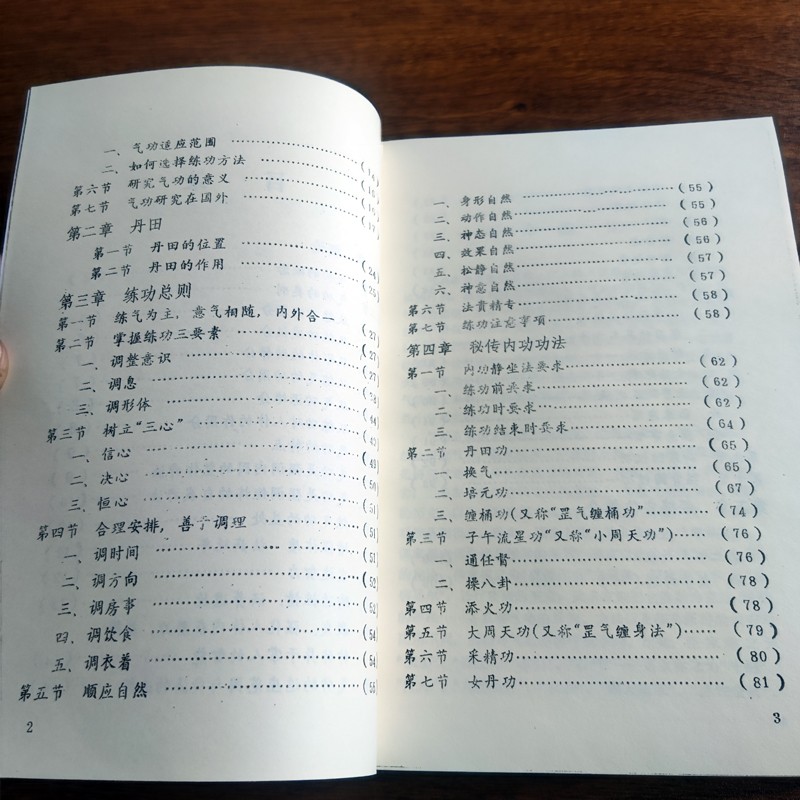 一、气功适应范围 ……………
二、如何选择练功方法 ……………
第六节 研究气功的意义 ……………
第七节 气功研究在国外 ……………
第二章 丹田
第一节 丹田的位置 ……………(24
第二节 丹田的作用 ……………(25
第三章 练功总则
第一节 练气为主，意气相随，内外合一
第二节 掌握练功三要素 ……………(27
一、调整意识 ……………(27
二、调息 ……………
三、调形体 ……………(44
第三节 树立“三心” ……………
一、信心 ……………(49
二、决心 ……………(50
三、恒心 ……………(51
第四节 合理安排，善于调理 ……………(51
一、调时间 ……………(51
二、调方向 ……………(52
三、调房事 ……………
四、调饮食 ……………(54
五、调衣着 ……………(54
第五节 顺应自然 ……………(55
2
一、身形自然 ……………(55)
二、动作自然 ……………(55)
三、神态自然 ……………(56)
四、效果自然 ……………(56)
五、松静自然 ……………(57)
六、神意自然 ……………(57)
第六节 法贵精专 ……………(58)
第七节 练功注意事项 ……………(58)
第四章 秘传内功功法
第一节 内功静坐法要求 ……………(62)
一、练功前要求 ……………(62)
二、练功时要求 ……………(62)
三、练功结束时要求 ……………(64)
第二节 丹田功 ……………(65)
一、换气 ……………(65)
二、培元功 ……………(67)
三、缠桶功(又称“罡气缠桶功” ……………(74)
第三节 子午流星功“又称“小周天功”)……(76)
一、通任督 ……………(76)
二、操八卦 ……………(78)
第四节 添火功 ……………(78)
第五节 大周天功(又称“罡气缠身法”)……(79)
第六节 采精功 ……………(80)
第七节 女丹功 ……………(81)
3